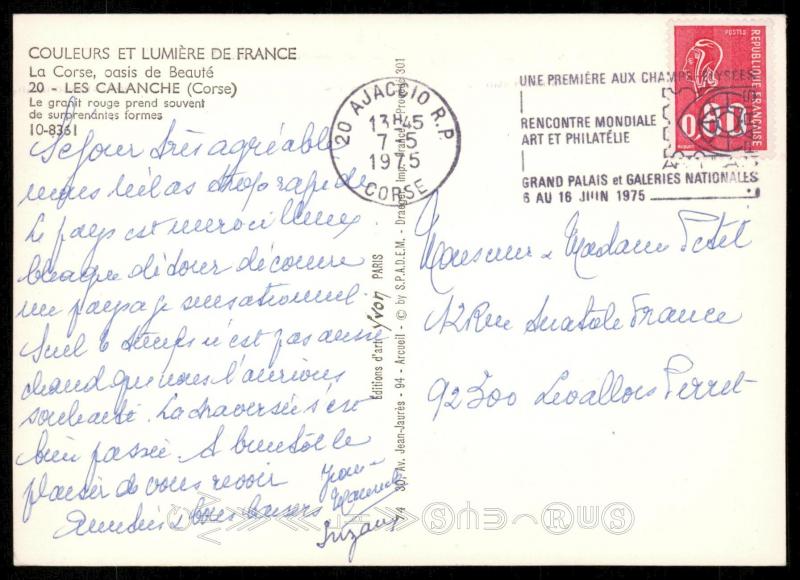 COULEURS ET LUMIÈRE DE FRANCE
La Corse, oasis de Beauté
20 - LES CALANCHE (Corse)
Le granit rouge prend souvent
de surprenantes formes
10-8361
Séjour très agréable
mais hélas trop rapide
Le pays est merveilleux
Chaque détour découvre
un paysage sensationnel.
Seul le temps n'est pas aussi
chaud que nous l'aurions
souhaité. La traversée s'est
bien passée. A bientôt le
plaisir de vous revoir
Amitiés & bons baisers
Jean-
Maurice
Suzanne
Éditions d'art Yvon PARIS
94 30, Av. Jean-Jaurès - 94 - Arcueil - © by S.P.A.D.E.M. - Draeger, Imp. France - Procédé 301
20 AJACCIO R.P.
13H45
7-5
1975
CORSE
UNE PREMIÈRE AUX CHAMPS ELYSÉES
RENCONTRE MONDIALE
ART ET PHILATÉLIE
GRAND PALAIS et GALERIES NATIONALES
6 AU 16 JUIN 1975
POSTES
REPUBLIQUE FRANÇAISE
0,80
Monsieur & Madame Petel
12 Rue Anatole France
92300 Levallois Perret